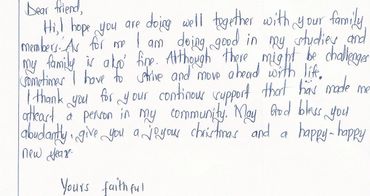 Dear friend,
Hi, I hope you are doing well together with your family
members. As for me I am doing good in my studies and
my family is also fine. Although there might be challenges
sometimes I have to strive and move ahead with life.
I thank you for your continous support that has made me
atleast a person in my community. May God bless you
abudantly, give you a joyous christmas and a happy-happy
new year.
Yours faithful